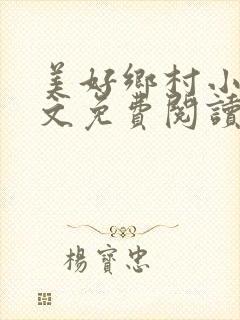 美好鄉村小
文免費閱讀
楊寶忠